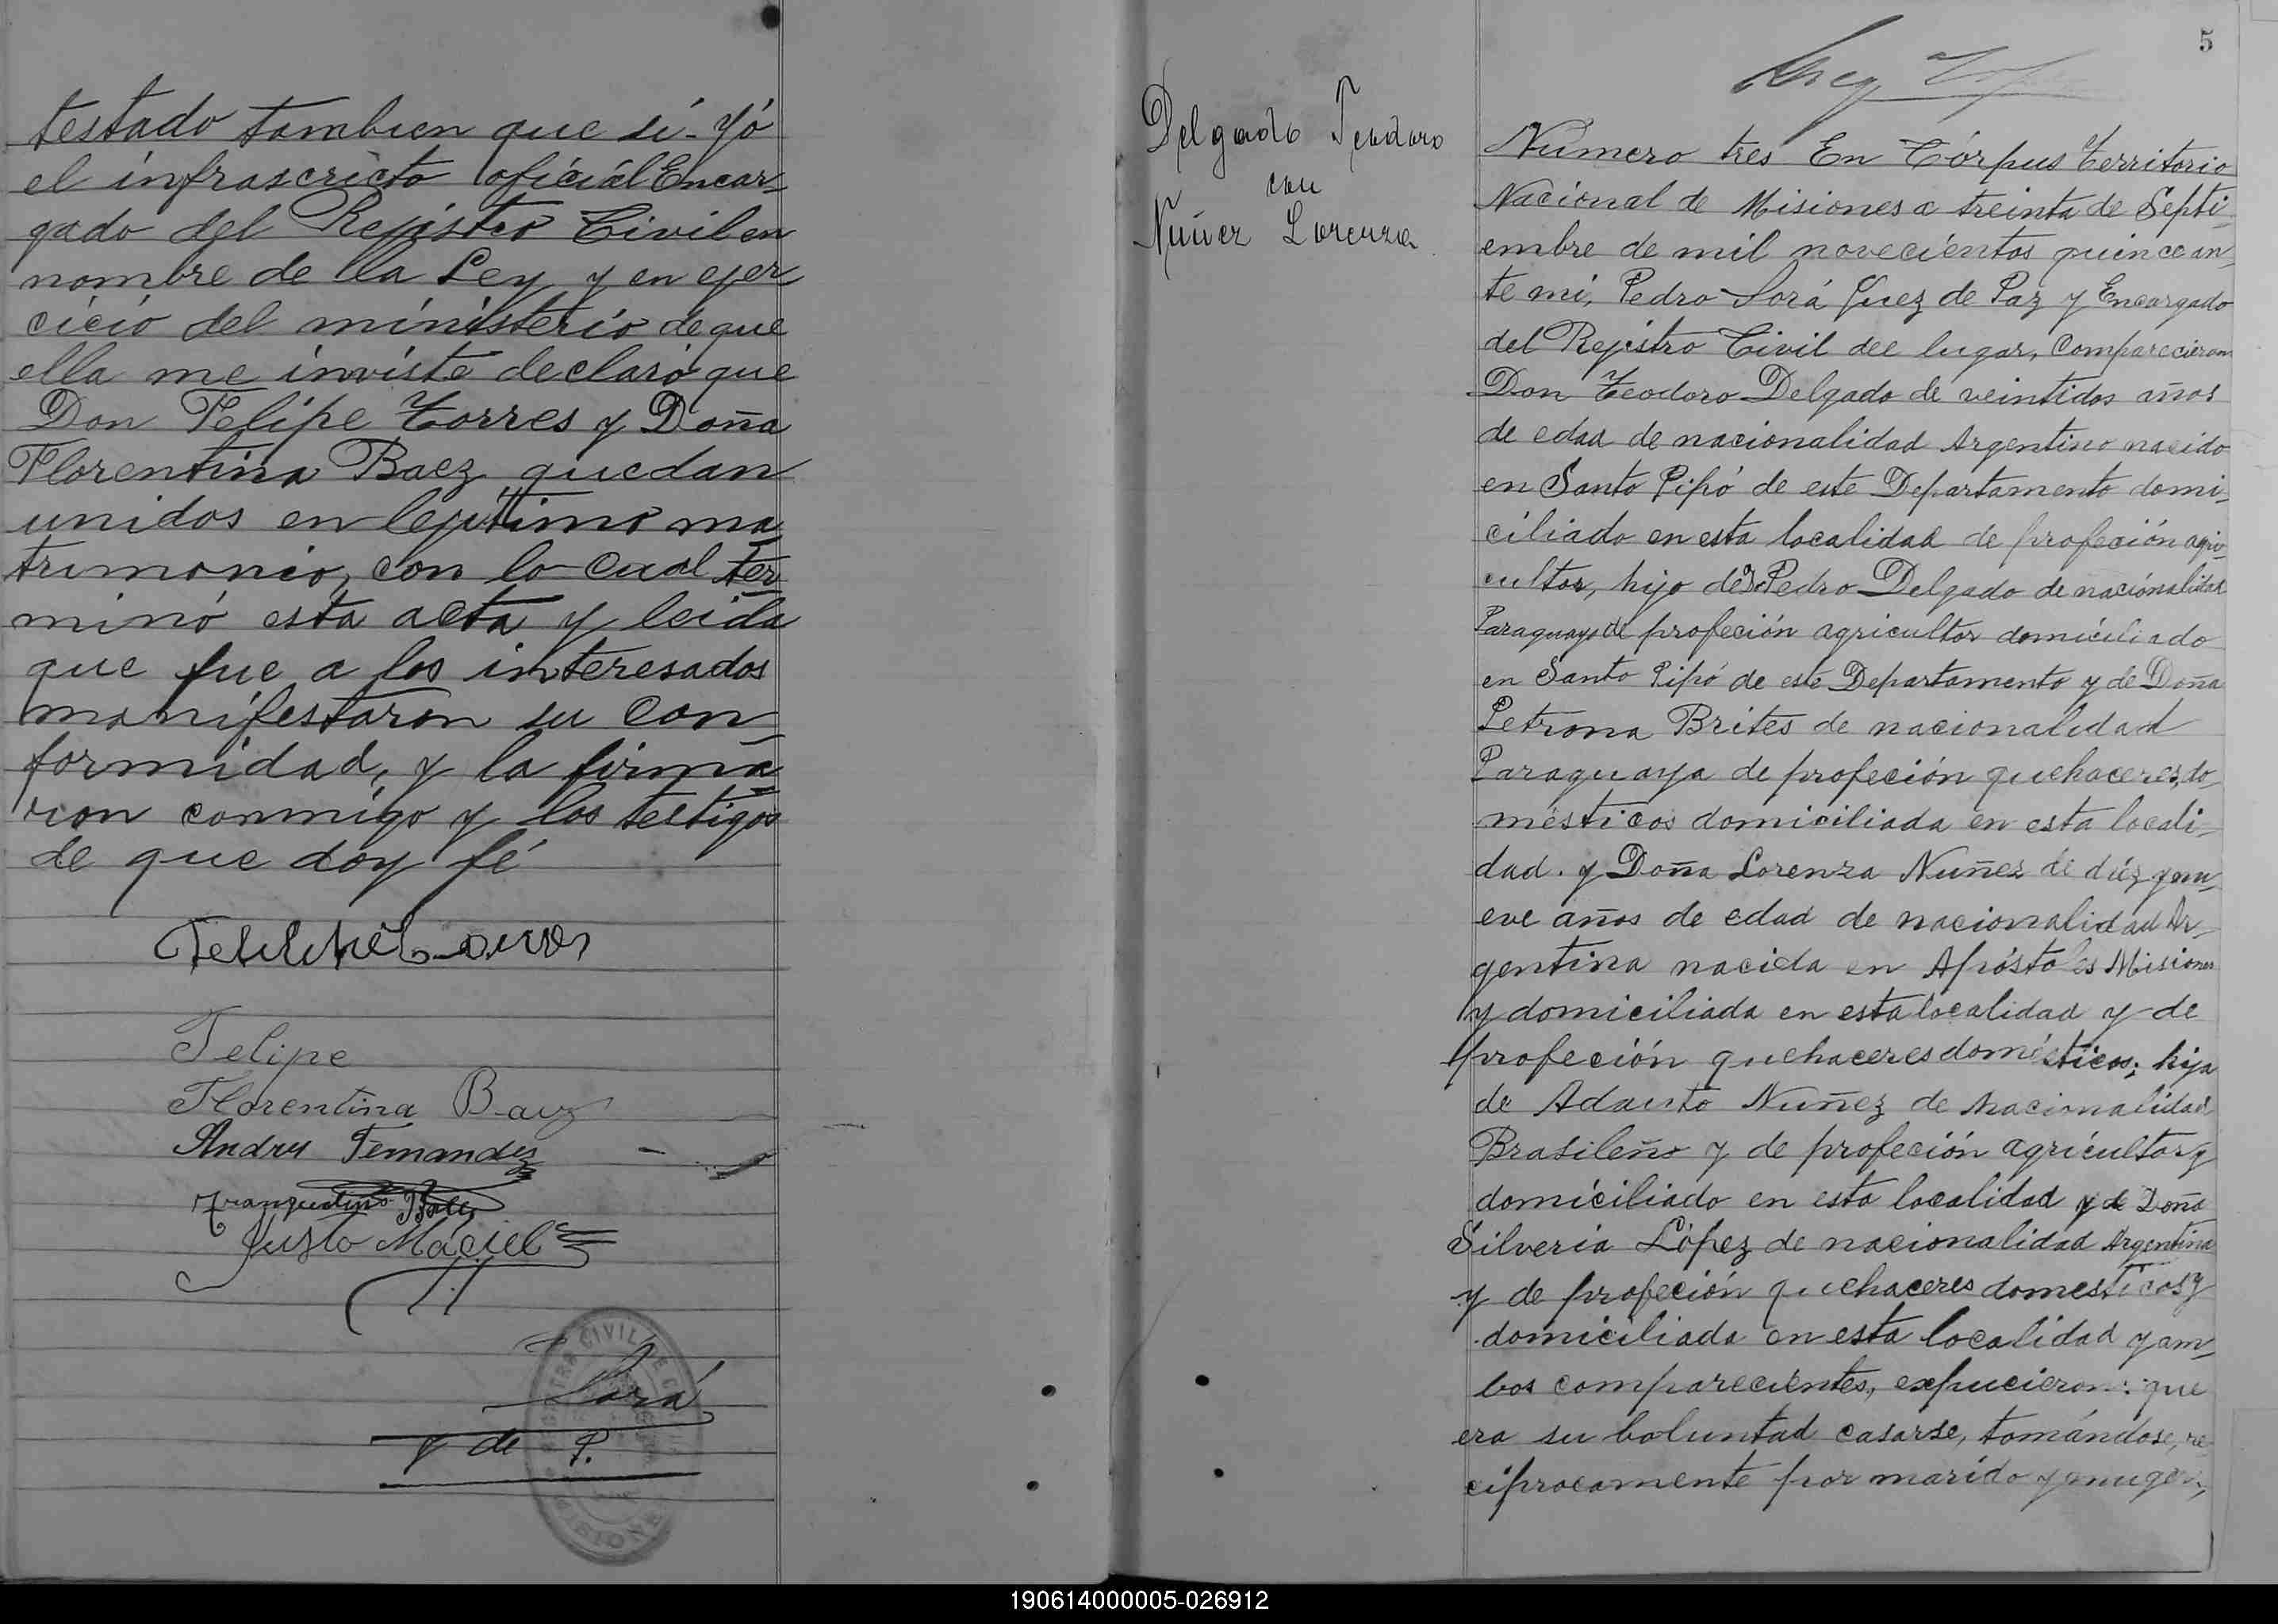 testado tambien que si - Yó
el infrascricto oficial Encar-
gado del Rejistro Civil en
nombre de la Ley y en ejer
cicio del ministerio de que
ella me inviste declaro que
Don Felipe Torres y Doña
Florentina Baez quedan
unidos en lejitimo ma
trimonio, con lo cual ter
minó esta acta y leida
que fue a los interesados
manifestaron su con
formidad, y la firma
ron conmigo y los testigos
de que doy fé
Felipe
Florentina Baez
Andres Fernandez
Tranquilino Baez
Justo Maciel
Sorá
y de P.
5
Delgado Teodoro
con
Núñez Lorenza
Número tres En Córpus territorio
Nacional de Misiones a treinta de Septi-
embre de mil novecientos quince an-
te mi, Pedro Sorá Juez de Paz y Encargado
del Rejistro Civil del lugar, Comparecieron
Don Teodoro Delgado de veintidos años
de edad de nacionalidad Argentino nacido
en Santo Pipó de este Departamento domi-
ciliado en esta localidad de profeción agri-
cultor, hijo de Dn Pedro Delgado de nacionalidad
Paraguayo de profeción agricultor domiciliado
en Santo Pipó de este Departamento y de Doña
Petrona Brites de nacionalidad
Paraguaya de profeción quehaceres do-
mésticos domiciliada en esta locali-
dad. y Doña Lorenza Nuñez de diéz y nu-
eve años de edad de nacionalidad Ar-
gentina nacida en Apóstoles Misiones
y domiciliada en esta localidad y de
profeción quehaceres domésticos; hija
de Adauto Nuñez de nacionalidad
Brasileño y de profeción agricultor y
domiciliado en esta localidad y de Doña
Silveria López de nacionalidad Argentina
y de profeción quehaceres domesticos y
domiciliada en esta localidad y am-
bos comparecientes, expucieron: que
era su boluntad casarse, tomándose, re-
ciprocamente por marido y muger,
190614000005-026912